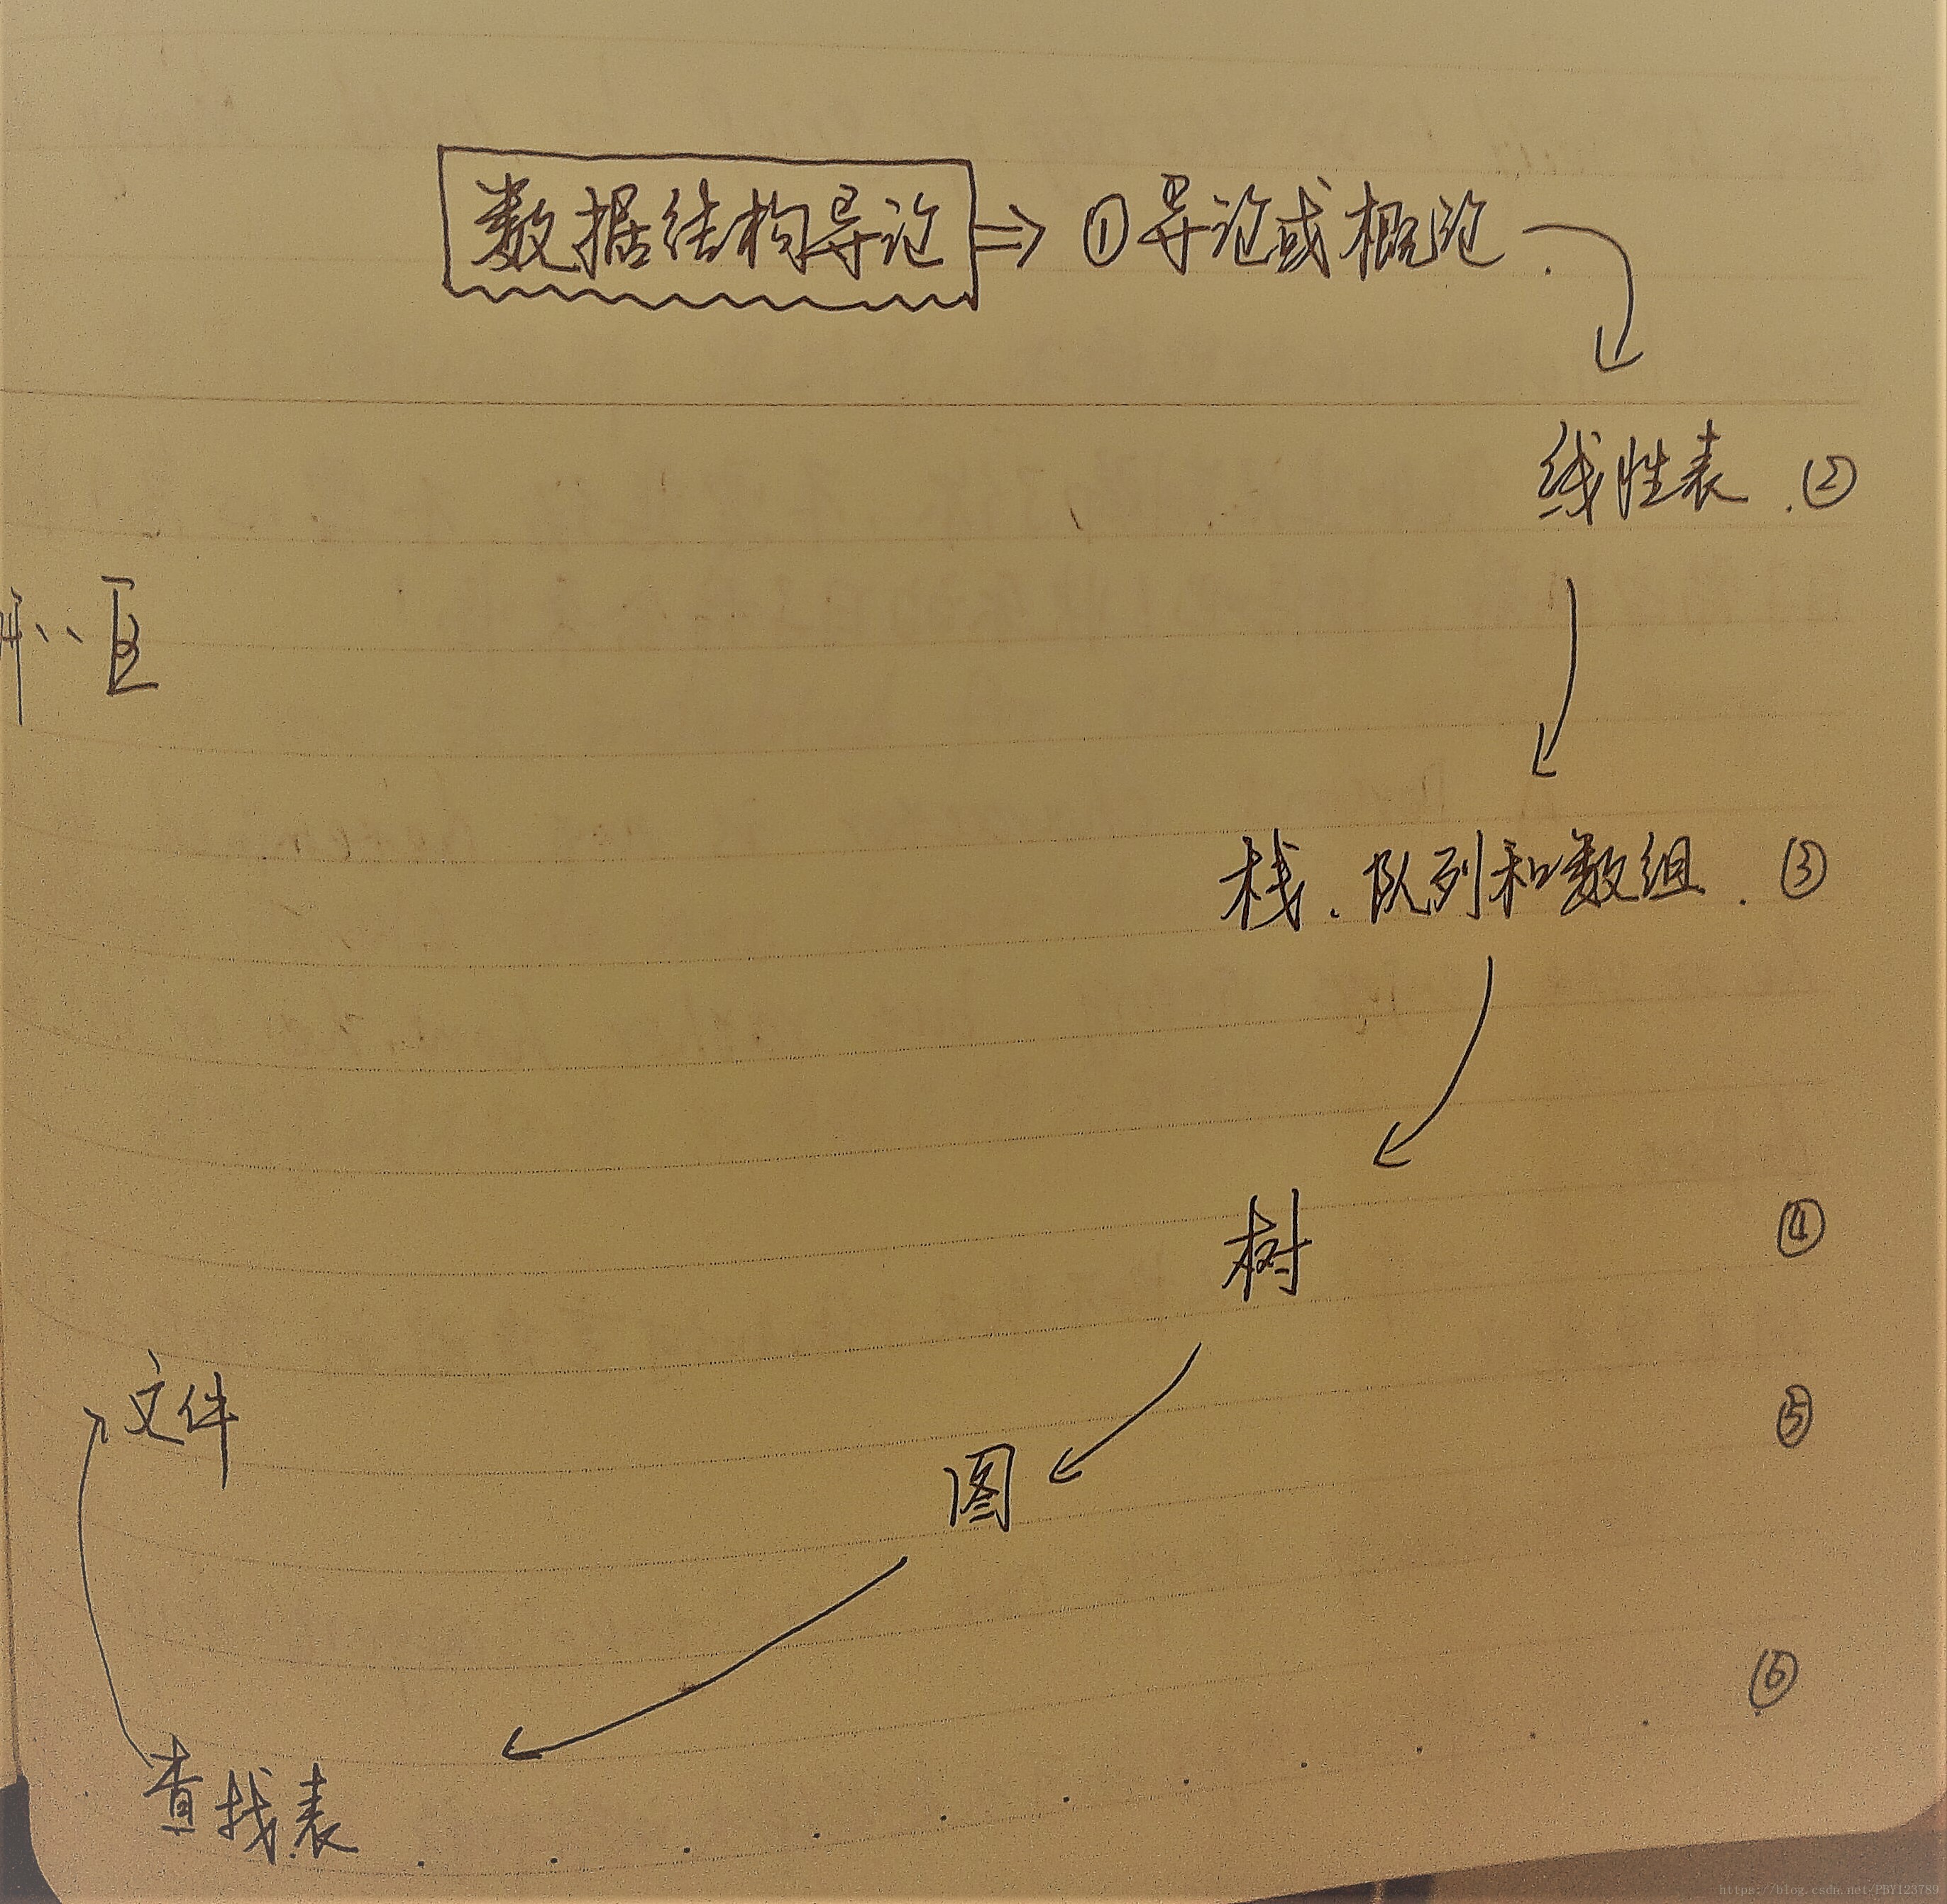 数据结构导论 ⇒ ①导论或概论.
线性表.②
栈.队列和数组.③
树 ④
文件 ⑤
图
⑥
查找表
https://blog.csdn.net/PBY123789